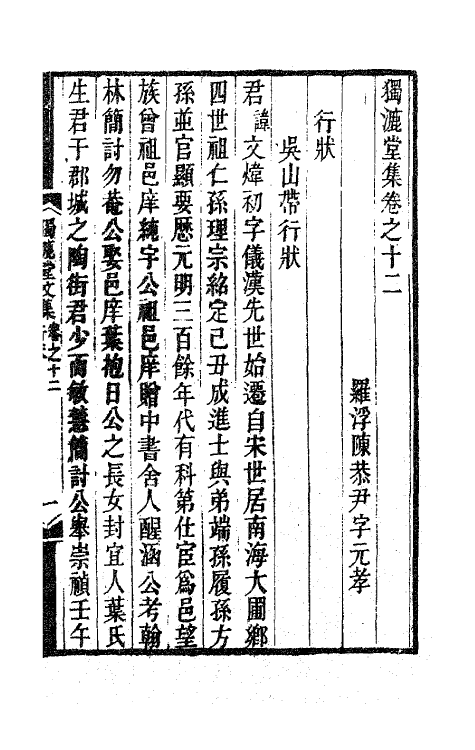 獨漉堂集卷之十二
羅浮陳恭尹字元孝
行狀
吳山帶行狀
君諱文煒初字儀漢先世始遷自宋世居南海大圃鄉
四世祖仁孫理宗紹定己丑成進士與弟端孫履孫方
孫並官顯要歷元明三百餘年代有科第仕宦爲邑望
族曾祖邑庠純宇公祖邑庠贈中書舍人醒涵公考翰
林簡討勿菴公娶邑庠葉抱日公之長女封宜人葉氏
生君于郡城之陶街君少而敏慧簡討公舉崇禎壬午
獨漉堂文集 卷之十二 一